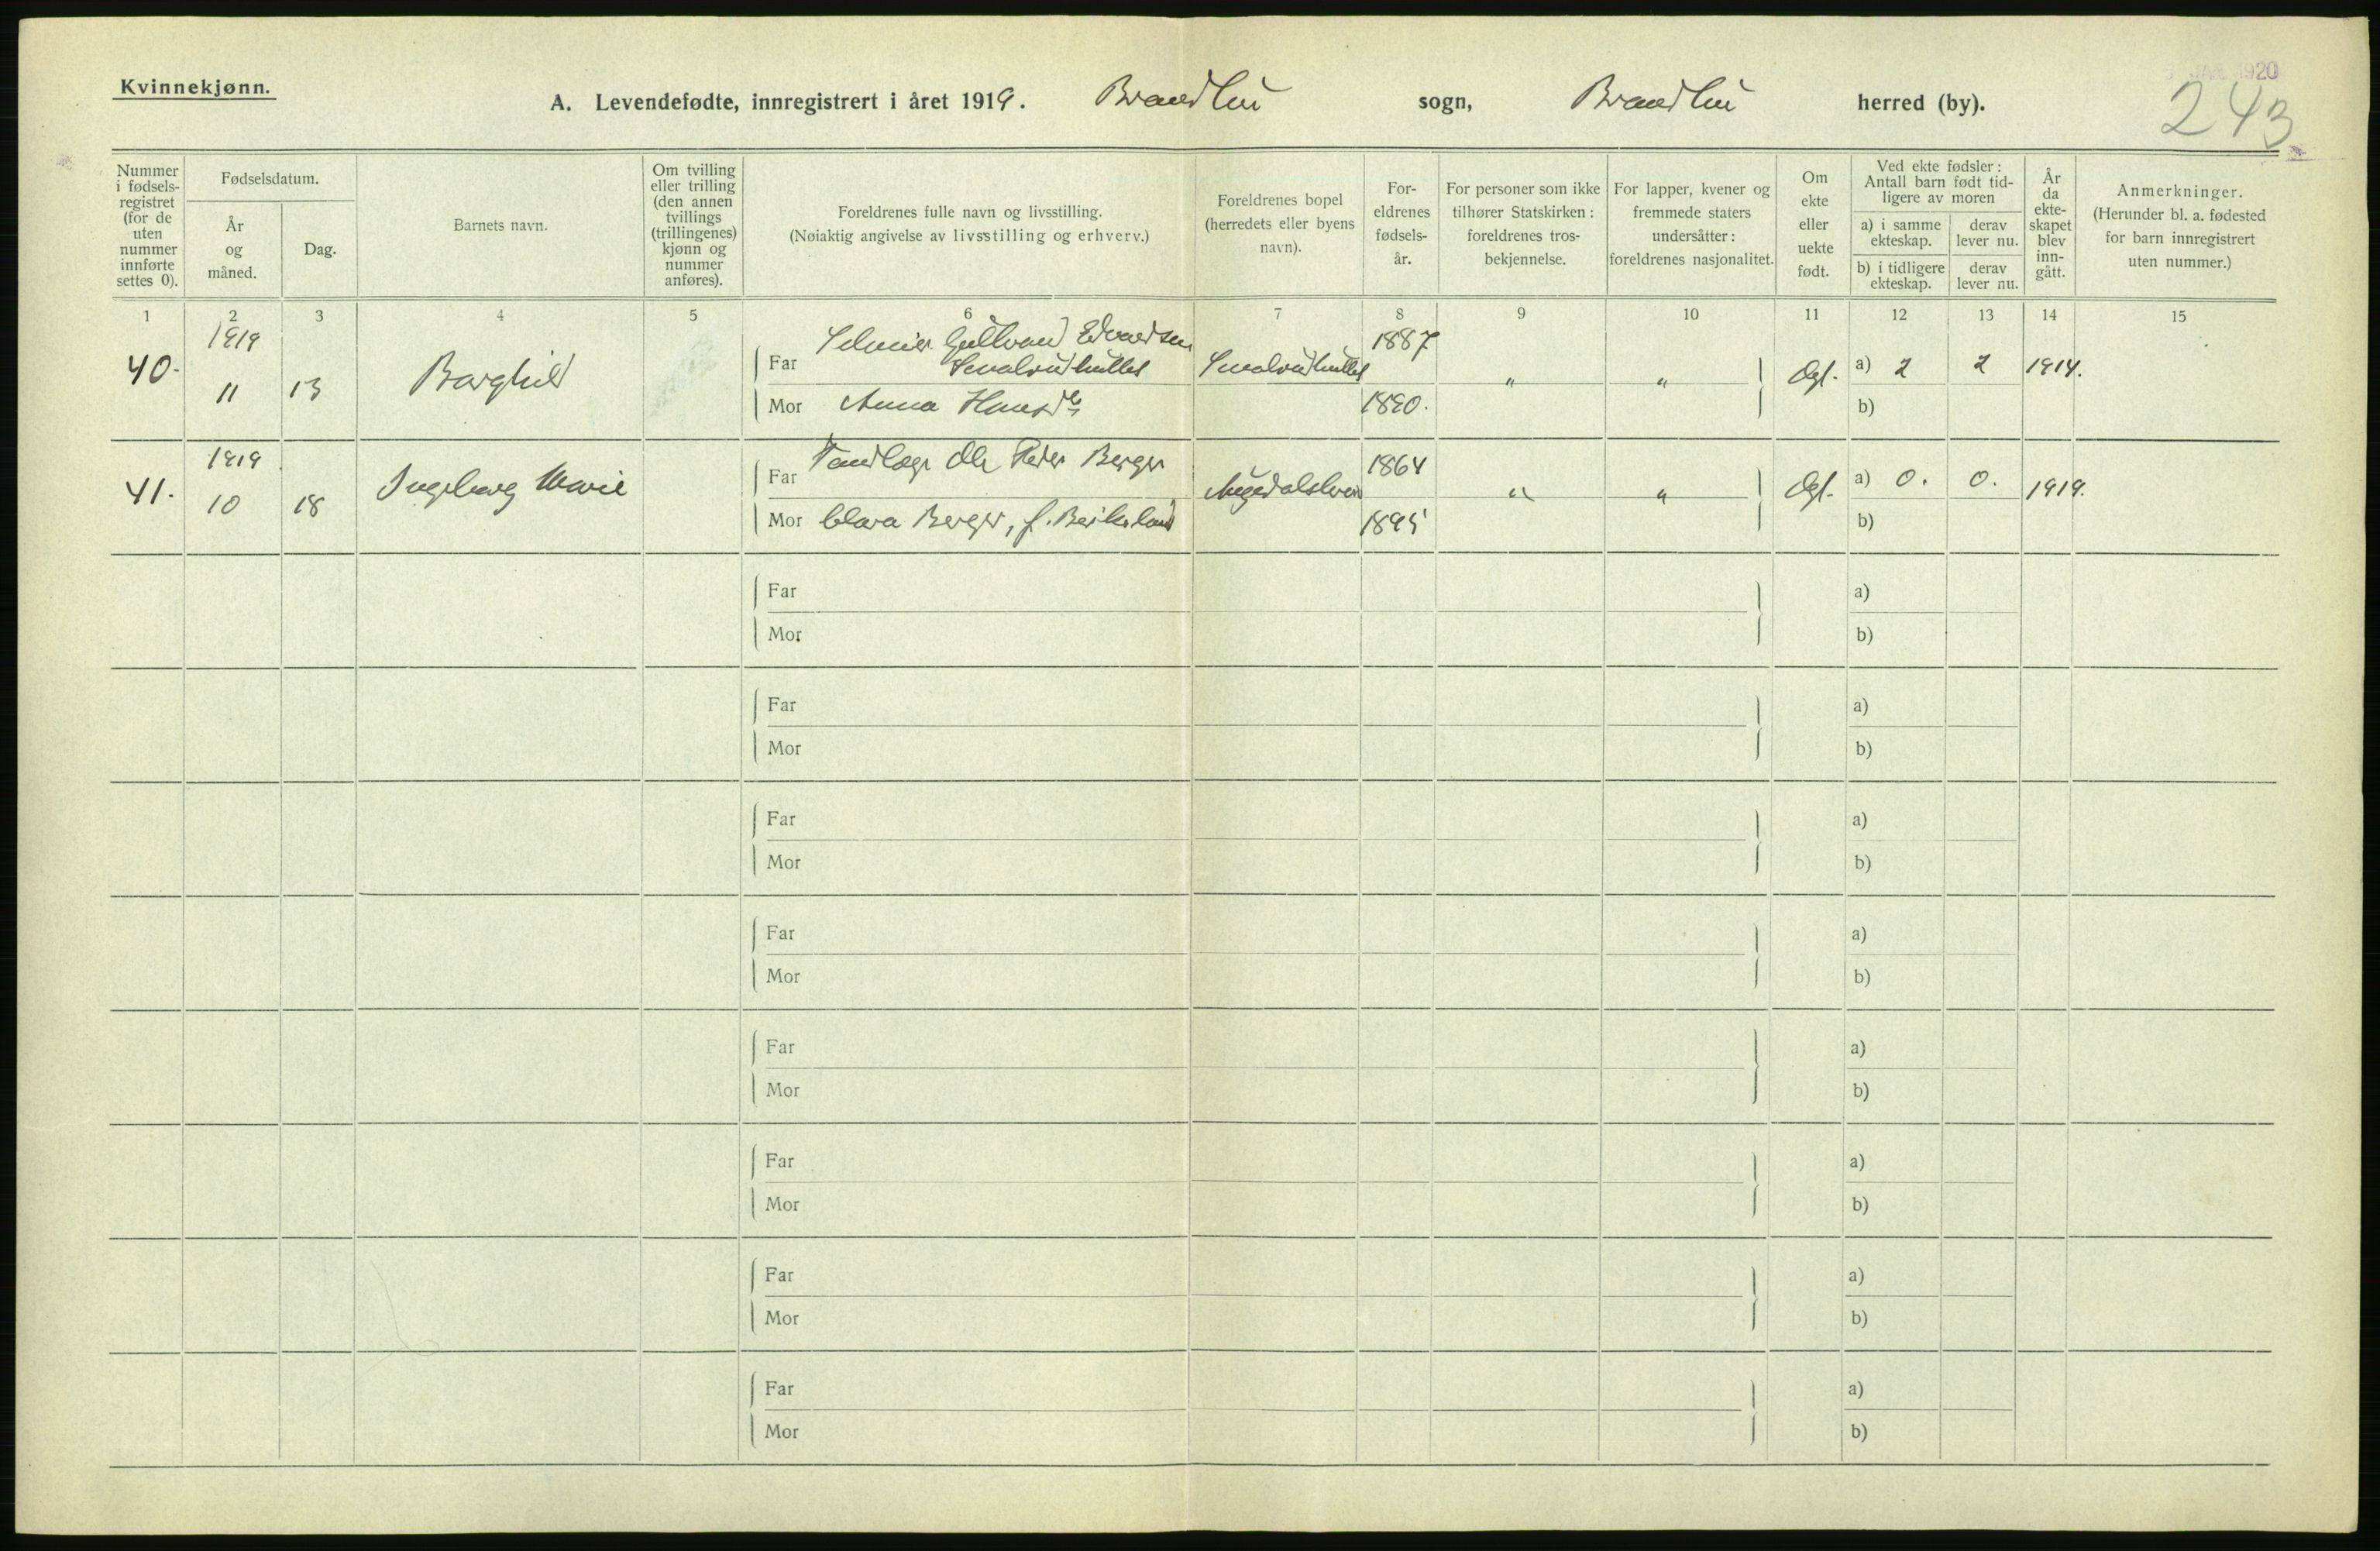 Kvinnekjønn.
A. Levendefødte, innregistrert i året 1919. Brandbu sogn, Brandbu herred (by).
JAN. 1920
243
Nummer i fødsels-registret (for de uten nummer innførte settes 0).
Fødselsdatum.
År og måned.
Dag.
Barnets navn.
Om tvilling eller trilling (den annen tvillings (trillingenes) kjønn og nummer anføres).
Foreldrenes fulle navn og livsstilling.
(Nøiaktig angivelse av livsstilling og erhverv.)
Foreldrenes bopel (herredets eller byens navn).
For-eldrenes fødsels-år.
For personer som ikke tilhører Statskirken: foreldrenes tros-bekjennelse.
For lapper, kvener og fremmede staters undersåtter: foreldrenes nasjonalitet.
Om ekte eller uekte født.
Ved ekte fødsler: Antall barn født tid-ligere av moren
a) i samme ekteskap.
derav lever nu.
b) i tidligere ekteskap.
derav lever nu.
År da ekte-skapet blev inn-gått.
Anmerkninger.
(Herunder bl. a. fødested for barn innregistrert uten nummer.)
1 2 3 4 5 6 7 8 9 10 11 12 13 14 15
40. 1919 11 13 Borghild
Far Gulbrand Edvardsen 1887 " " Egt. a) 2 2 1914.
Mor Anna Hansdt 1890. b)
41. 1919 10 18 Ingeborg Marie
Far Tandlæge Ole Peder Berger 1864 " " Egt. a) 0. 0. 1919.
Mor Clara Berger, f. 1895 b)
Far a)
Mor b)
Far a)
Mor b)
Far a)
Mor b)
Far a)
Mor b)
Far a)
Mor b)
Far a)
Mor b)
Far a)
Mor b)
Far a)
Mor b)